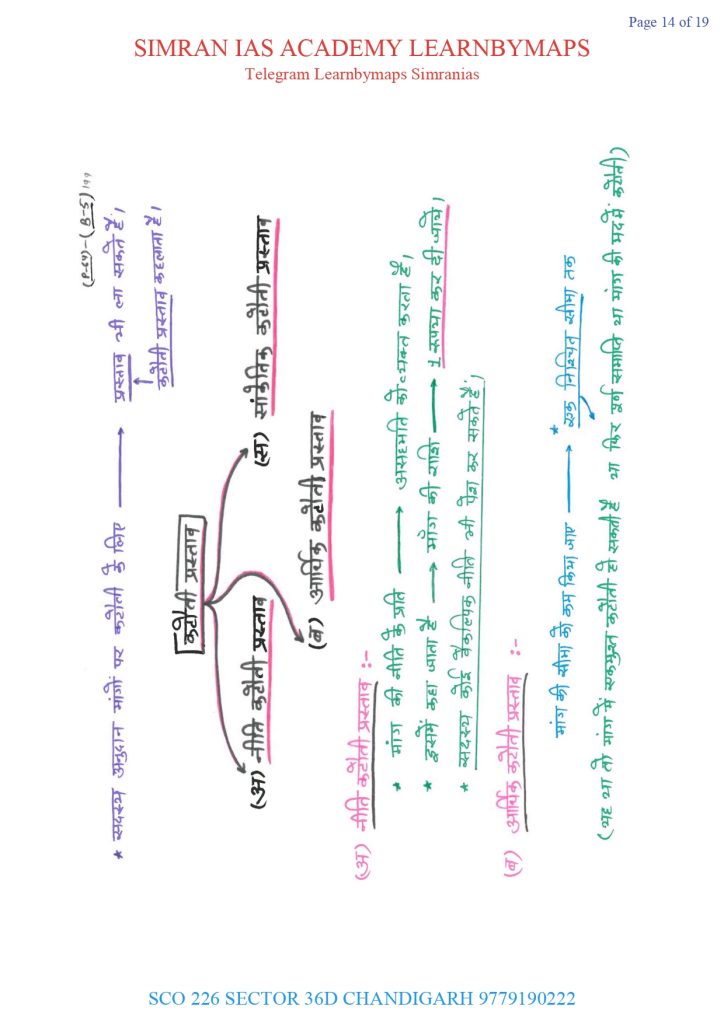 Page 14 of 19
SIMRAN IAS ACADEMY LEARNBYMAPS
Telegram Learnbymaps Simranias
(P-64)-(B-5)
* सदस्य अनुदान मांगों पर कटौती के लिए ⟶ प्रस्ताव भी ला सकते हैं।
कटौती प्रस्ताव कहलाता है।
कटौती प्रस्ताव
(अ) नीति कटौती प्रस्ताव (स) सांकेतिक कटौती प्रस्ताव
(ब) आर्थिक कटौती प्रस्ताव
(अ) नीति कटौती प्रस्ताव :-
* मांग की नीति के प्रति ⟶ असहमति को व्यक्त करता है।
* इसमें कहा जाता है ⟶ मांग की राशि ⟶ 1 रूपया कर दी जाये।
* सदस्य कोई वैकल्पिक नीति भी पेश कर सकते हैं।
(ब) आर्थिक कटौती प्रस्ताव :-
मांग की सीमा को कम किया जाए ⟶ * एक निश्चित सीमा तक
(यह या तो मांग में एकमुश्त कटौती हो सकती है या फिर पूर्ण समाप्ति या मांग की मद में कटौती)
SCO 226 SECTOR 36D CHANDIGARH 9779190222